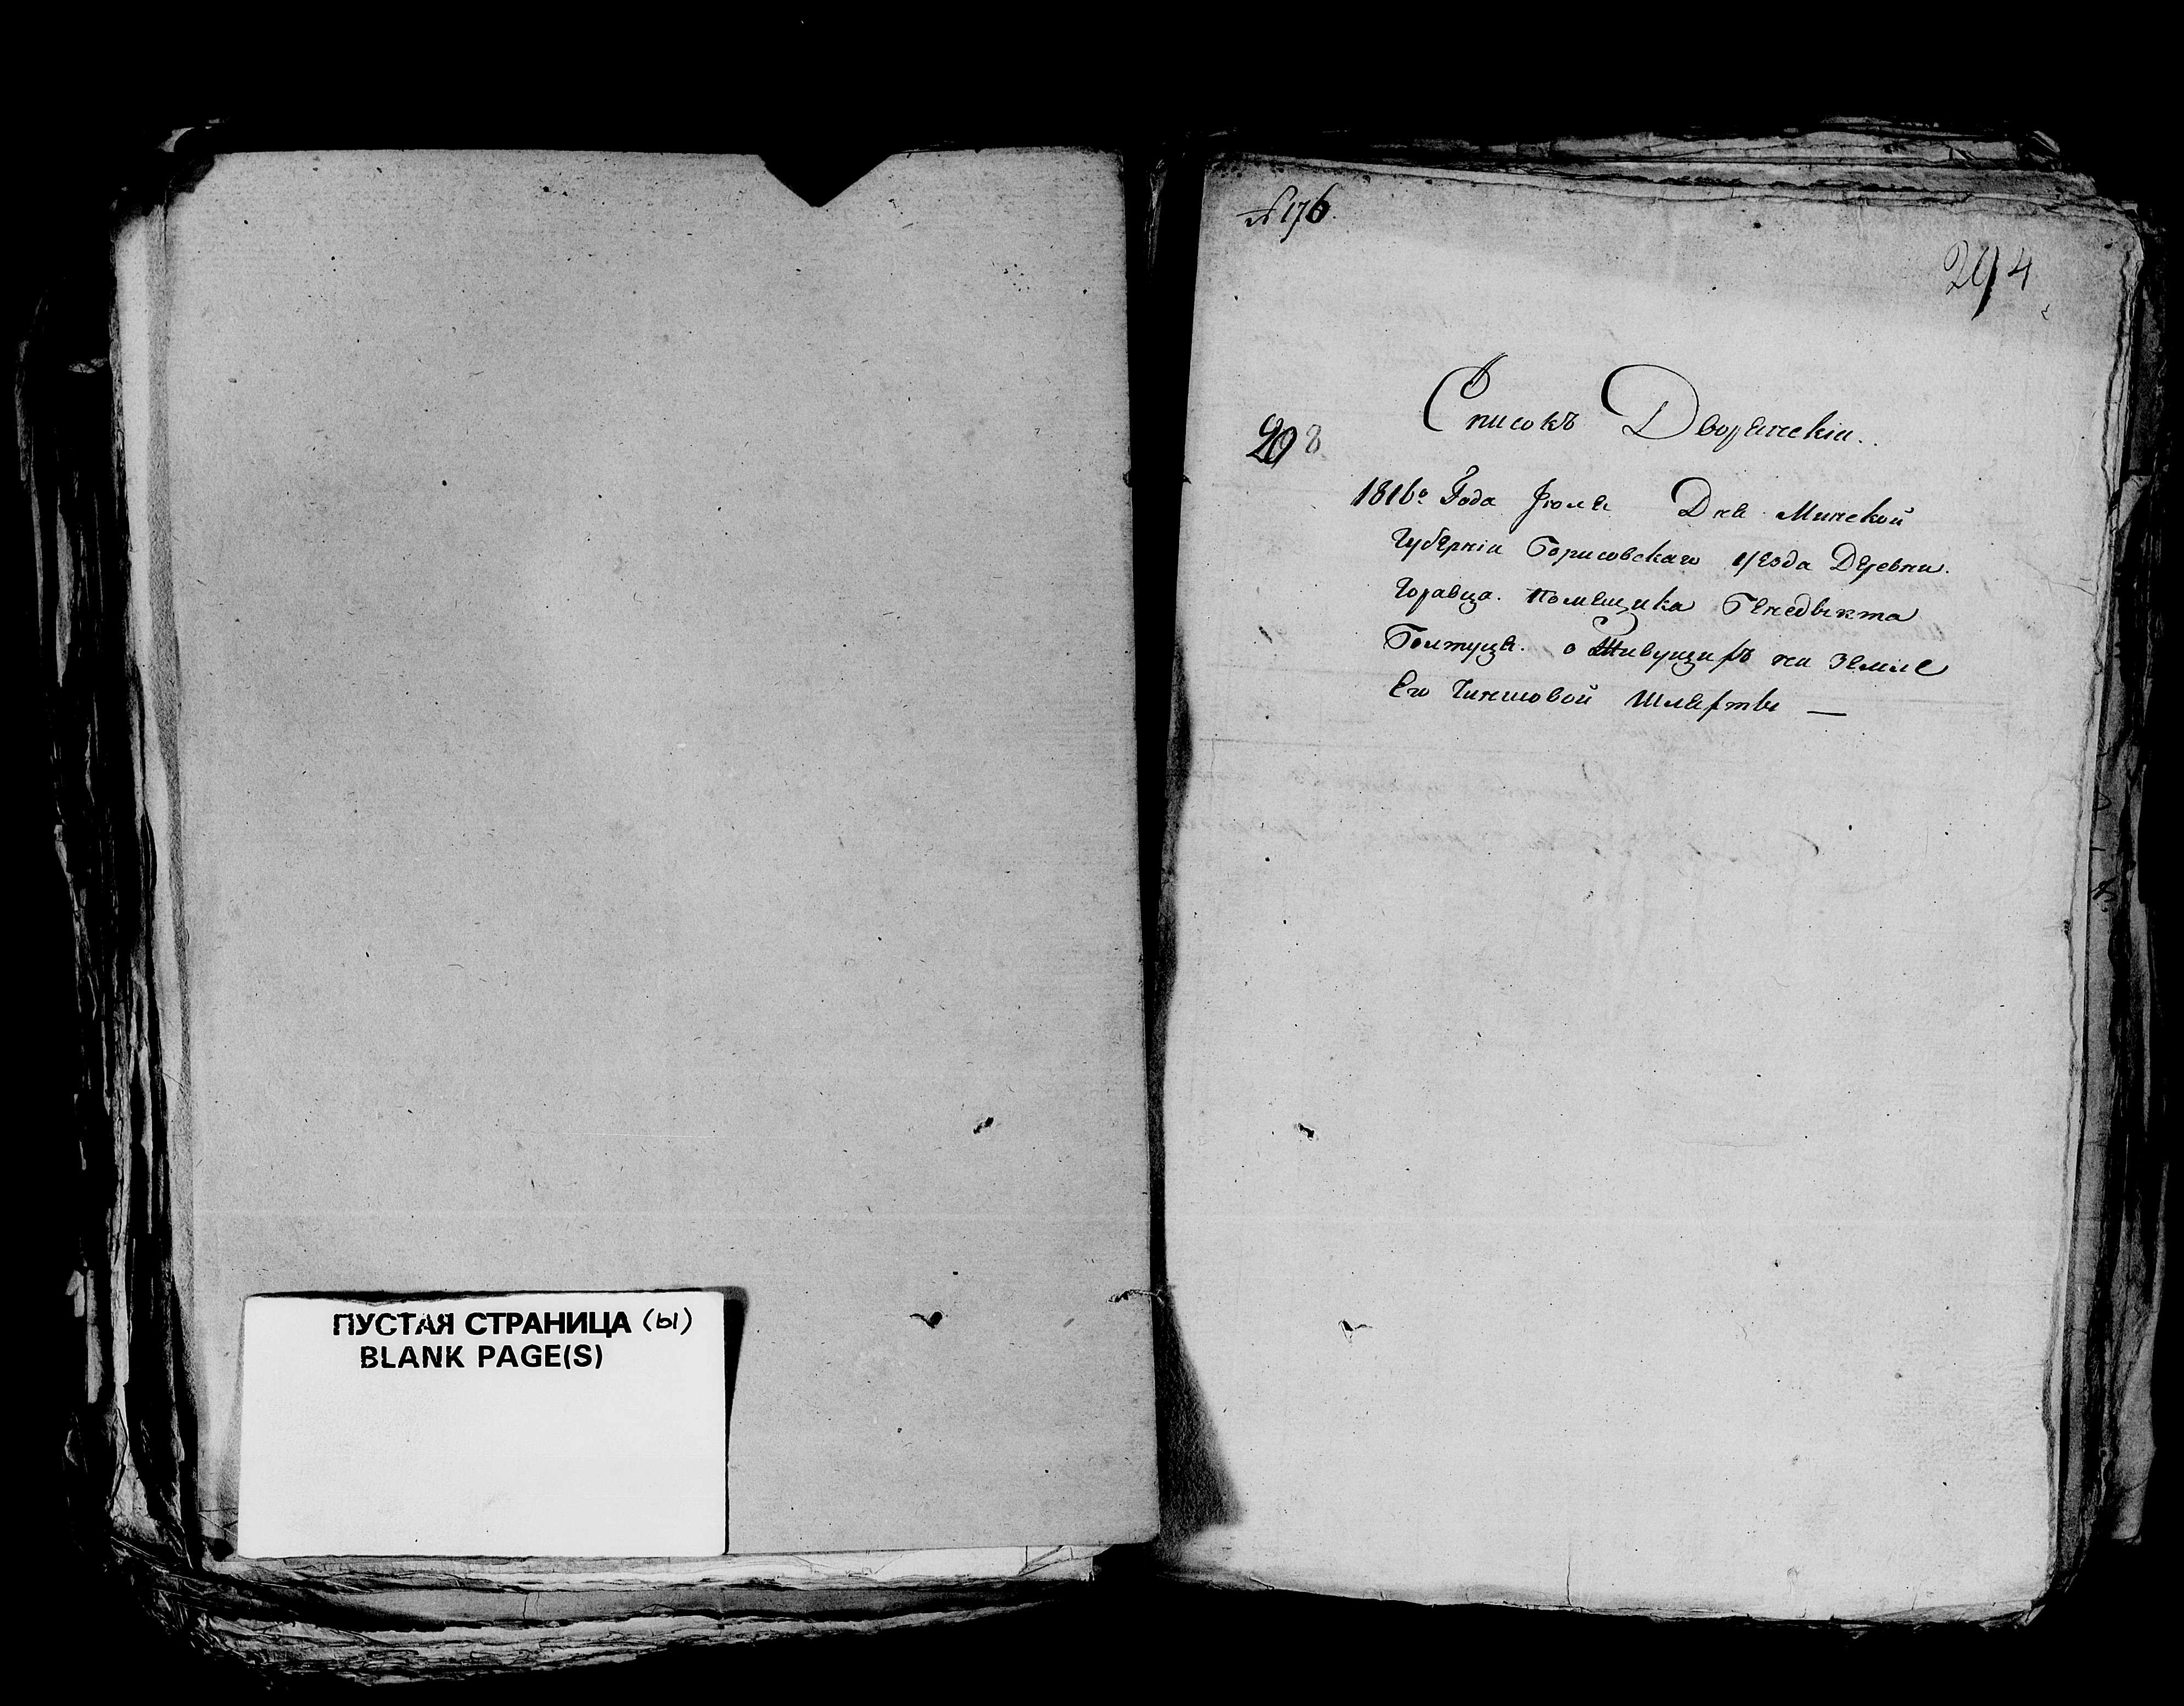 ПУСТАЯ СТРАНИЦА (ы)
BLANK PAGE(S)
№ 176.
294
208
Списокъ Дворянскiи.
1816го Года Июля Дня Минской
Губернiи Борисовскаго уезда Деревни.
Помещика Бенедыкта
о Живущихъ на земле
Его Чиншовой Шляхты —